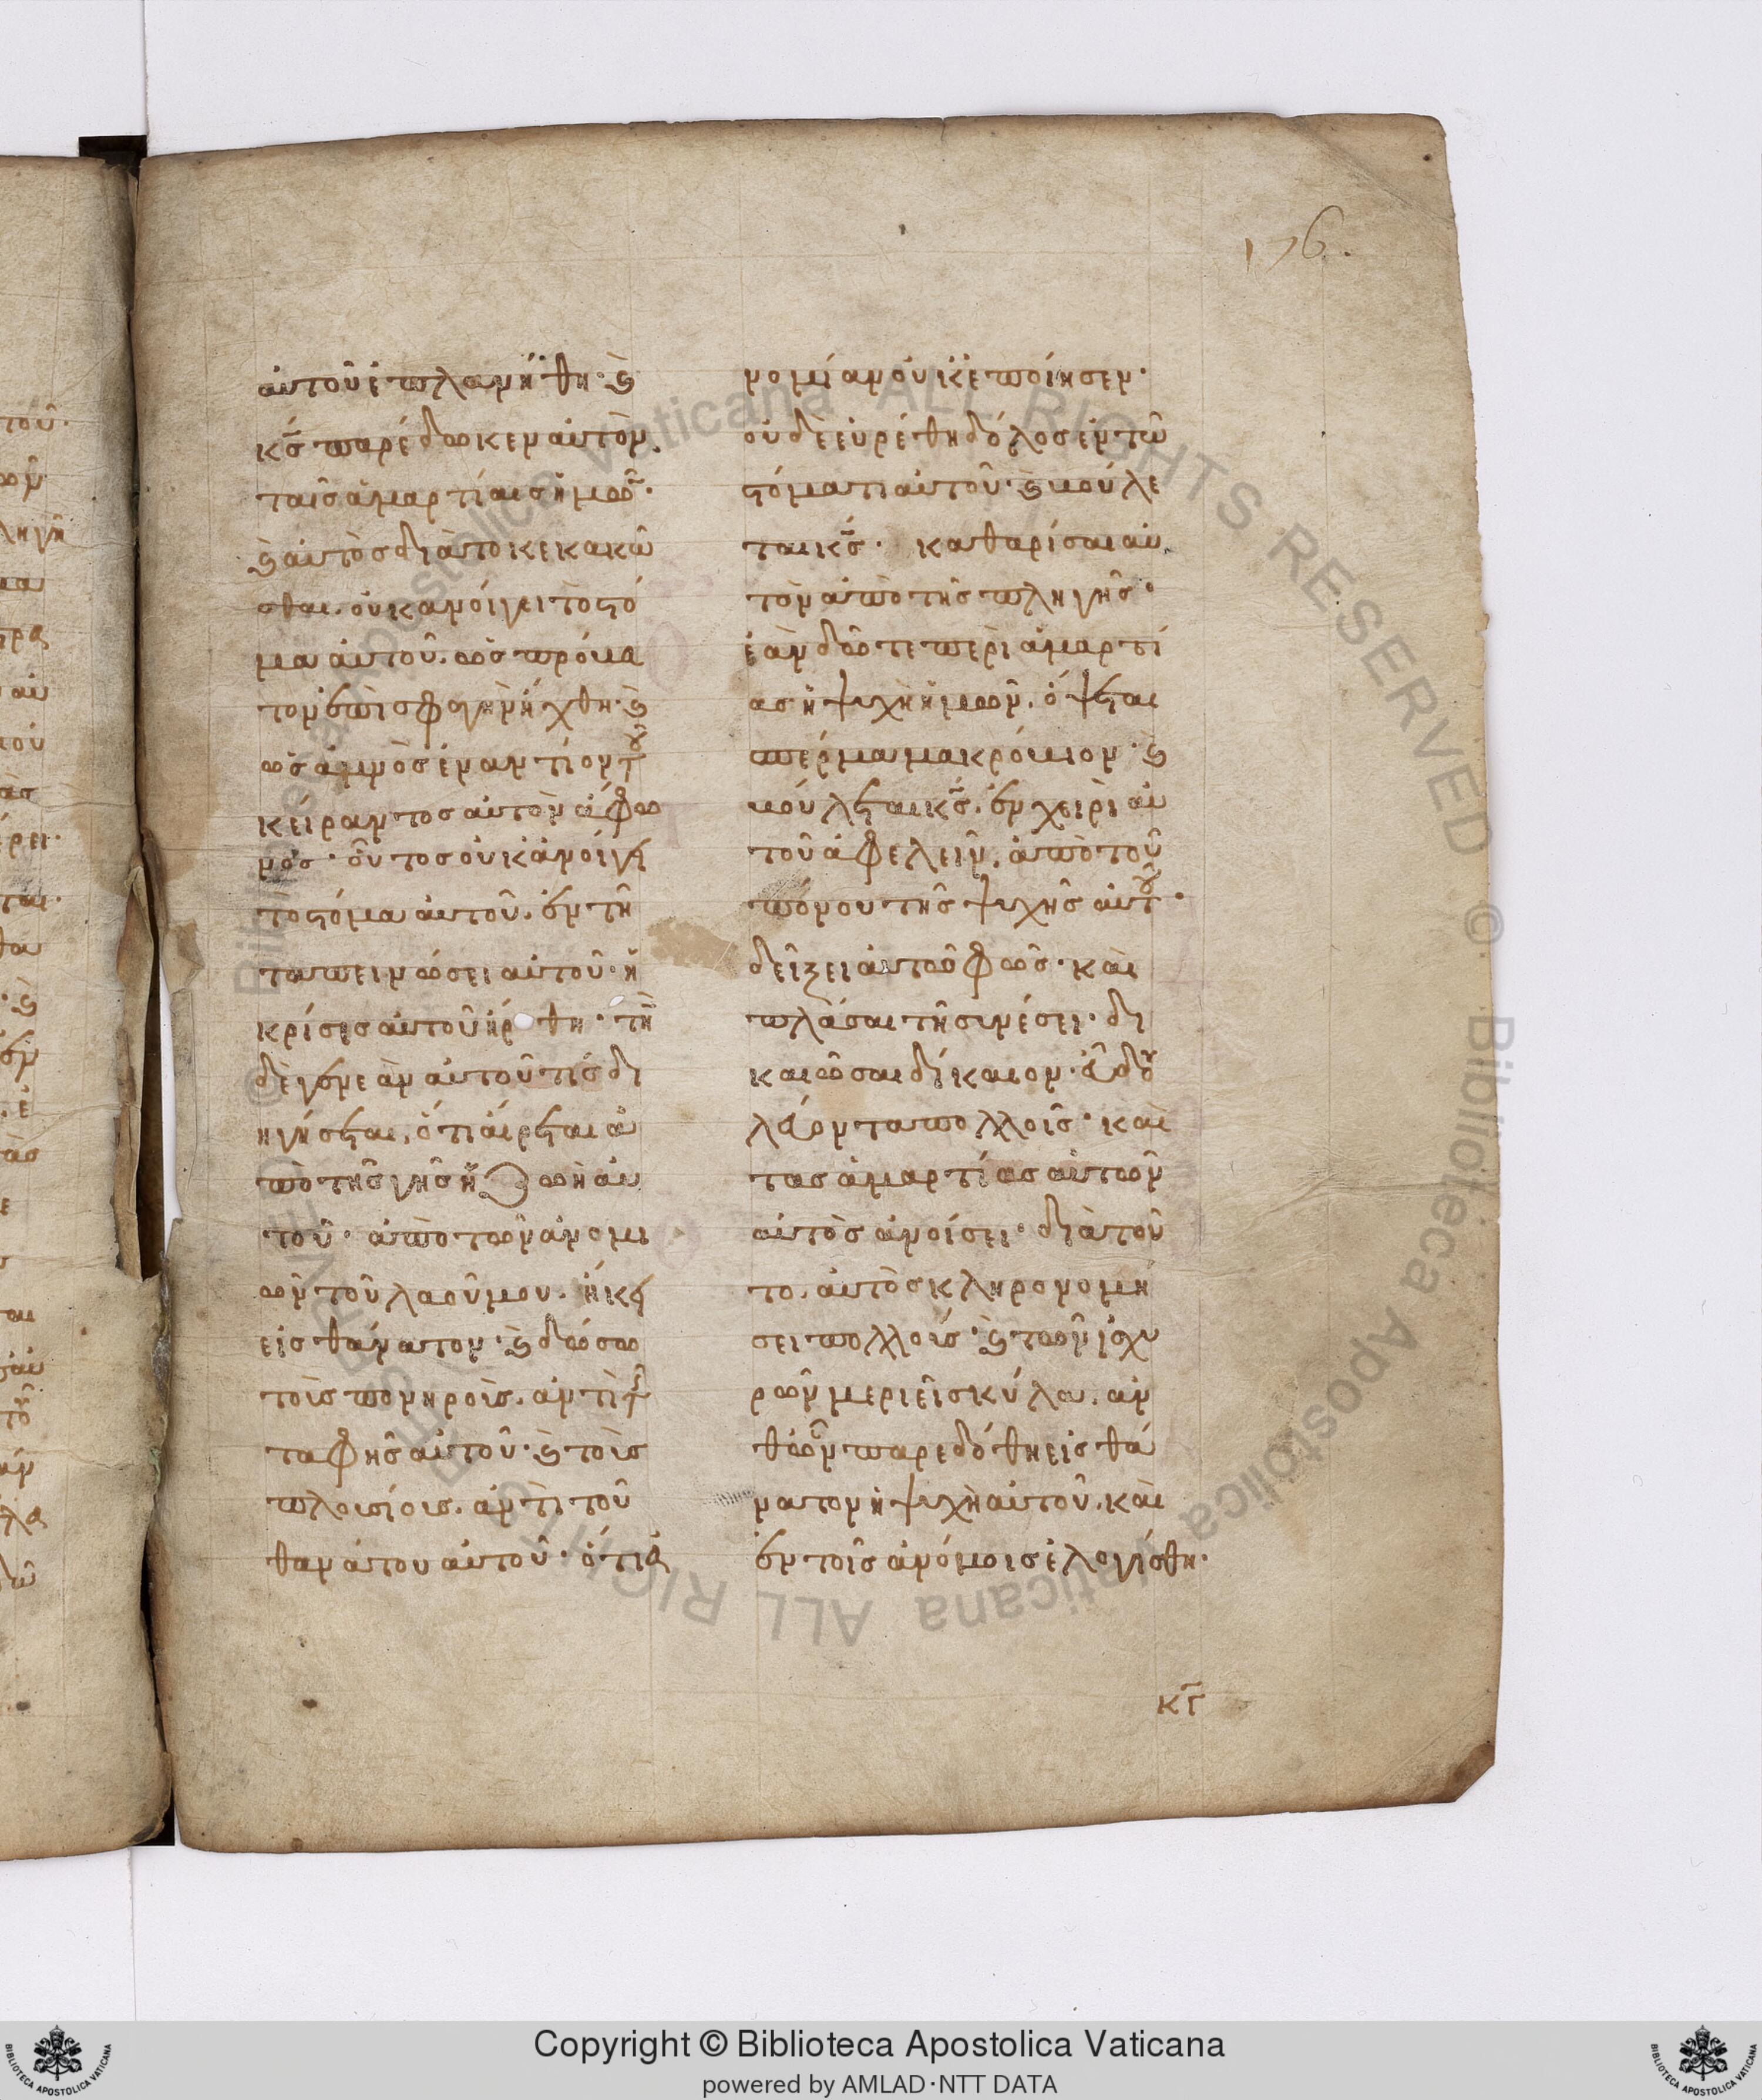 176.
αὐτοῦ ἐπλανήθη· ϗ
κ̅ς̅ παρέδωκεν αὐτὸν
ταῖς ἁμαρτίαις ἡμῶν·
ϗ αὐτὸς διὰ το κεκακῶ
σθαι. οὐκ ἀνοίγει τὸ στό
μα αὐτοῦ. ὡς πρόβα
τον ἐπὶ σφαγὴν ἤχθη· ϗ
ὡς ἀμνὸς ἐναντίον τοῦ
κείραντος αὐτὸν ἄφω
νος· οὕτος οὐκ ἀνοίγει
το στόμα αὐτοῦ. ἐν τῆ
ταπεινώσει αὐτοῦ· ἡ
κρίσις αὐτοῦ ἤρθη· τὴν
δὲ γενεὰν αὐτοῦ τίς δι
ηγήσεται. ὅτι αἴρεται ἀ
πὸ τῆς γῆς ἡ ζωὴ αὐ
τοῦ· ἀπὸ τῶν ἀνομι
ῶν τοῦ λαοῦ μου. ἥκει
εἰς θάνατον· ϗ δώσω
τοὺς πονηροὺς. ἀντὶ τῆς
ταφῆς αὐτοῦ· ϗ τοὺς
πλουσίους. ἀντὶ τοῦ
θανάτου αὐτοῦ· ὅτι ἀ
νομίαν οὐκ ἐποίησεν·
οὐδὲ εὑρέθη δόλος ἐν τῶ
στόματι αὐτοῦ· ϗ βούλε
ται κ̅ς̅· καθαρίσαι αὐ
τὸν ἀπὸ τῆς πληγῆς·
ἐὰν δῶτε περὶ ἁμαρτί
ας ἡ ψυχὴ ἡμῶν. ὄψεται
σπέρμα μακρόβιον· ϗ
βούλεται κ̅ς̅. ἐν χειρὶ αὐ
τοῦ ἀφελεῖν. ἀπὸ τοῦ
πόνου τῆς ψυχῆς αὐτοῦ·
δεῖξει αὐτῶ φῶς· καὶ
πλάσαι τῆ συνέσει· δι
καιῶσαι δίκαιον· εὖ δου
λεύοντα πολλοῖς· καὶ
τας ἁμαρτίας αὐτῶν
αὐτὸς ἀνοίσει· διὰ τοῦ
το. αὐτὸς κληρονομή
σει πολλοὺς· ϗ τῶν ἰσχυ
ρῶν μεριεῖ σκύλα. ἀν
θῶν παρεδόθη εἰς θά
νατον ἡ ψυχὴ αὐτοῦ. καὶ
ἐν τοῖς ἀνόμοις ἐλογίσθη·
κγ̅
Copyright © Biblioteca Apostolica Vaticana
powered by AMLAD·NTT DATA